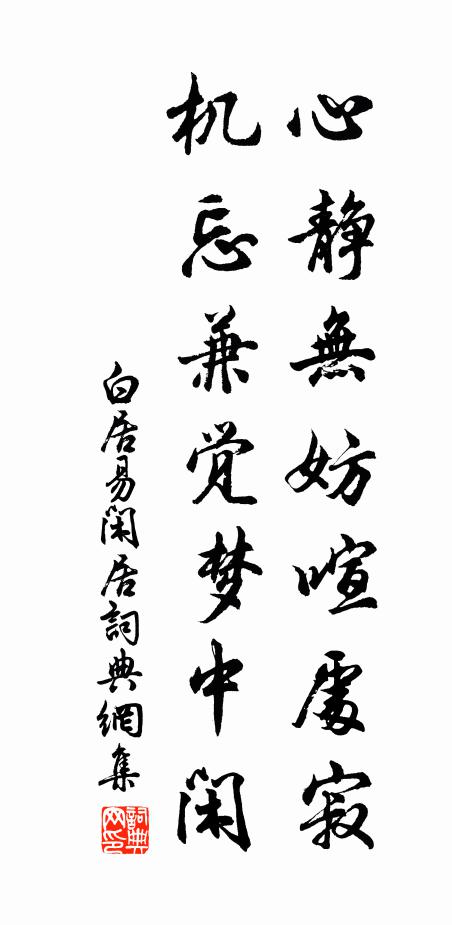 心靜無妨喧處寂
机忘兼觉梦中闲
白居易闲居詞典網集
詞典網印